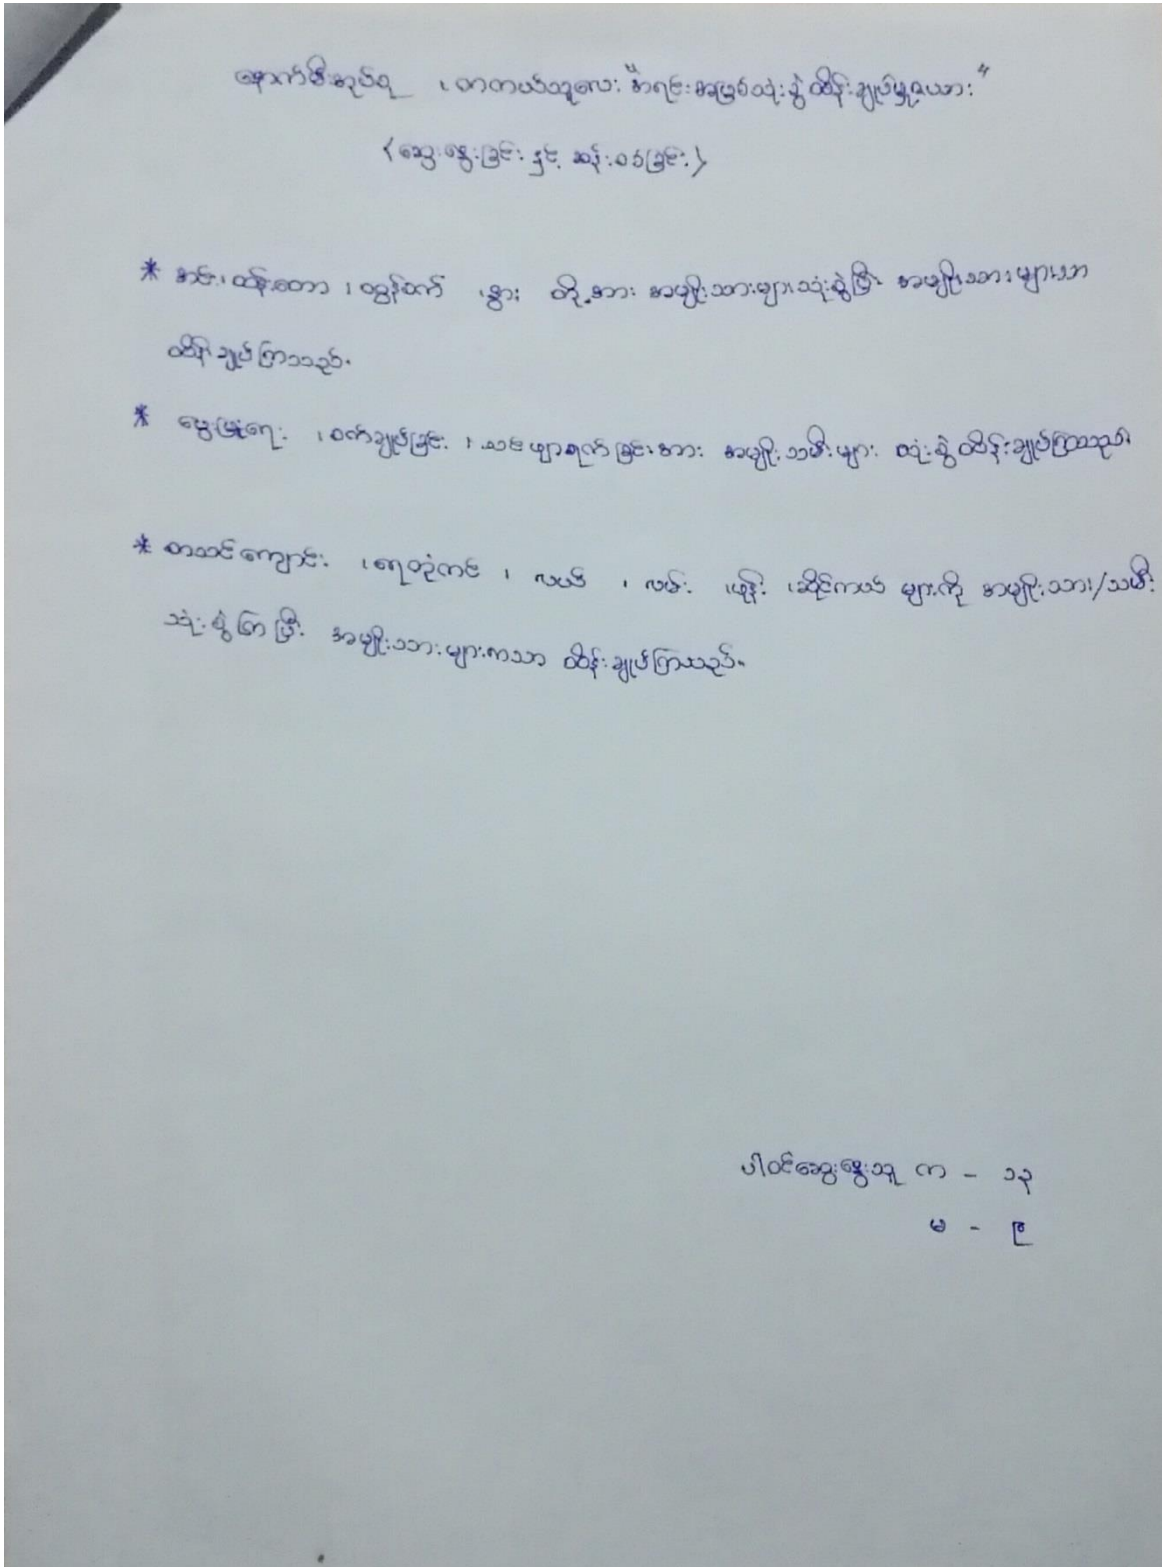 နောက်မီးအုပ်စု ၊ တကယ်သူလေး "အရင်းအမြစ်သုံးစွဲထိန်းချုပ်မှုဇယား"
(ဆွေးနွေးခြင်း နှင့် ဆန်းစစ်ခြင်း)
* ၊ ထန်းတော ၊ ထွန်စက် ၊ နွား တို့အား အမျိုးသားများသုံးစွဲပြီး အမျိုးသားများသာ
ထိန်းချုပ်ကြသည်။
* မွေးမြူရေး ၊ စက်ချုပ်ခြင်း ၊ သင်ဖျာရက်ခြင်းအား အမျိုးသမီးများ သုံးစွဲထိန်းချုပ်ကြသည်။
* စာသင်ကျောင်း ၊ ရေတွင်းကန် ၊ လယ် ၊ လမ်း ၊ ဖုန်း ၊ ဆိုင်ကယ် များကို အမျိုးသား/သမီး
သုံးစွဲကြပြီး အမျိုးသားများကသာ ထိန်းချုပ်ကြသည်။
ပါဝင်ဆွေးနွေးသူ က - ၁၃
မ - ၉